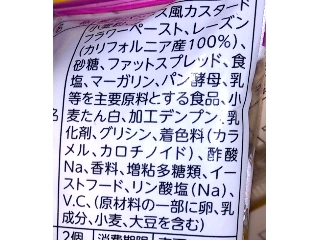 ス風カスタード
フラワーペースト、レーズン
(カリフォルニア産100%)、
砂糖、ファットスプレッド、食
塩、マーガリン、パン酵母、乳
等を主要原料とする食品、小
麦たん白、加工デンプン、乳
化剤、グリシン、着色料(カラ
メル、カロチノイド)、酢酸
Na、香料、増粘多糖類、イー
ストフード、リン酸塩(Na)、
V.C、(原材料の一部に卵、乳
成分、小麦、大豆を含む)
2個 消費期限